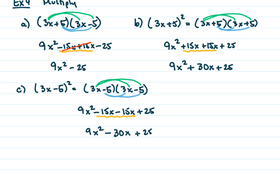 Ex4 Multiply
a) (3x+5)(3x-5)
9x² -15x+15x -25
9x² - 25
b) (3x+5)² = (3x+5)(3x+5)
9x² +15x+15x +25
9x² + 30x + 25
c) (3x-5)² = (3x-5)(3x-5)
9x² -15x -15x +25
9x² - 30x + 25